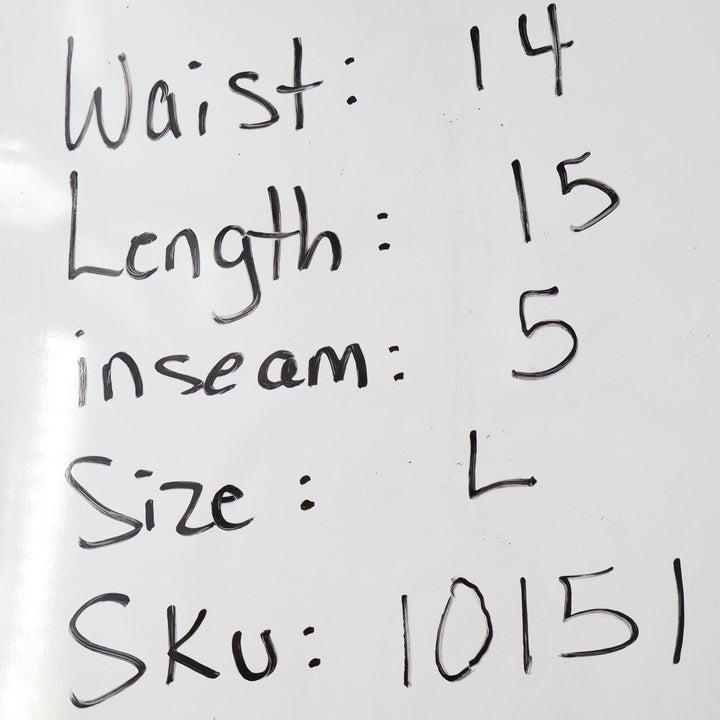 Waist: 14
Length: 15
inseam: 5
Size: L
SKu: 10151